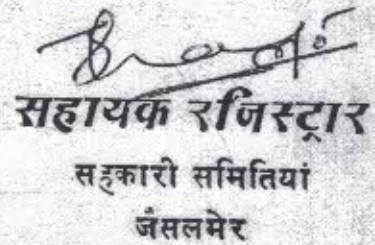 सहायक रजिस्ट्रार
सहकारी समितियां
जैसलमेर